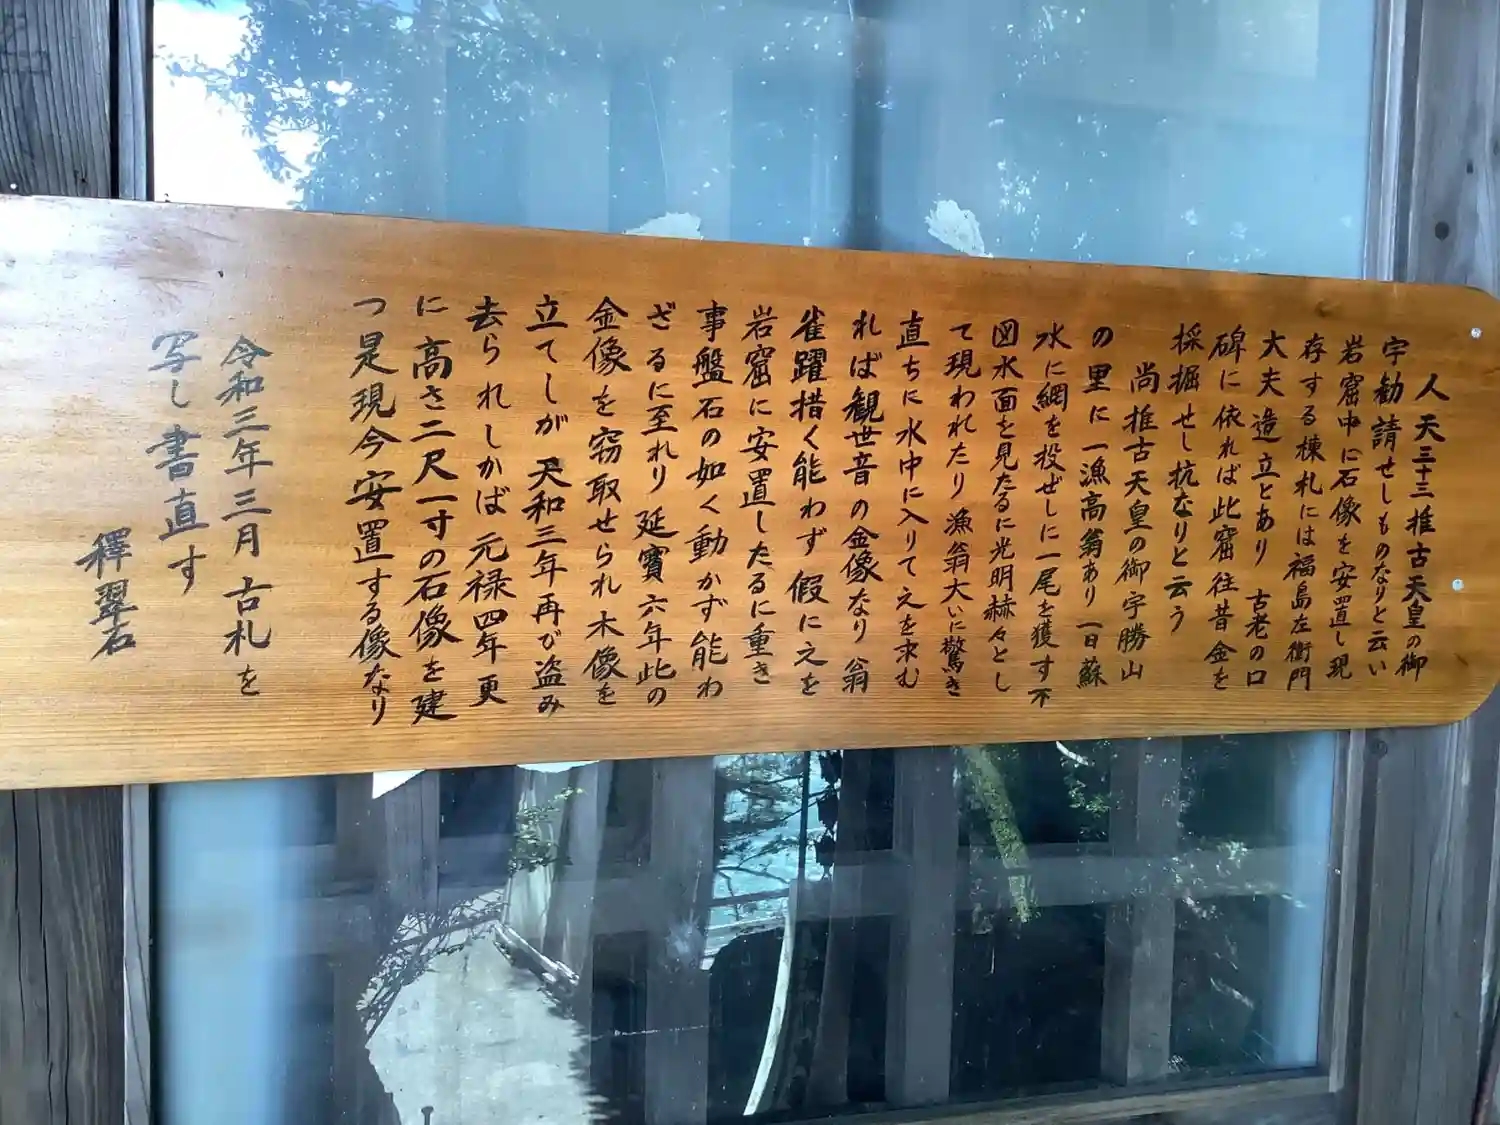 人天三十三推古天皇の御
宇勧請せしものなりと云い
岩窟中に石像を安置し現
存する棟札には福島左衛門
大夫造立とあり 古老の口
碑に依れば此窟往昔金を
採掘せし坑なりと云う
尚推古天皇の御宇勝山
の里に一漁高翁あり一日蘇
水に網を投ぜしに一尾を獲す不
図水面を見たるに光明赫々とし
て現われたり漁翁大いに驚き
直ちに水中に入りて之を求む
れば観世音の金像なり翁
雀躍措く能わず假に之を
岩窟に安置したるに重き
事盤石の如く動かず能わ
ざるに至れり延寶六年此の
金像を窃取せられ木像を
立てしが天和三年再び盗み
去られしかば元禄四年更
に高さ二尺一寸の石像を建
つ是現今安置する像なり
令和三年三月古札を
写し書直す
釋翠石